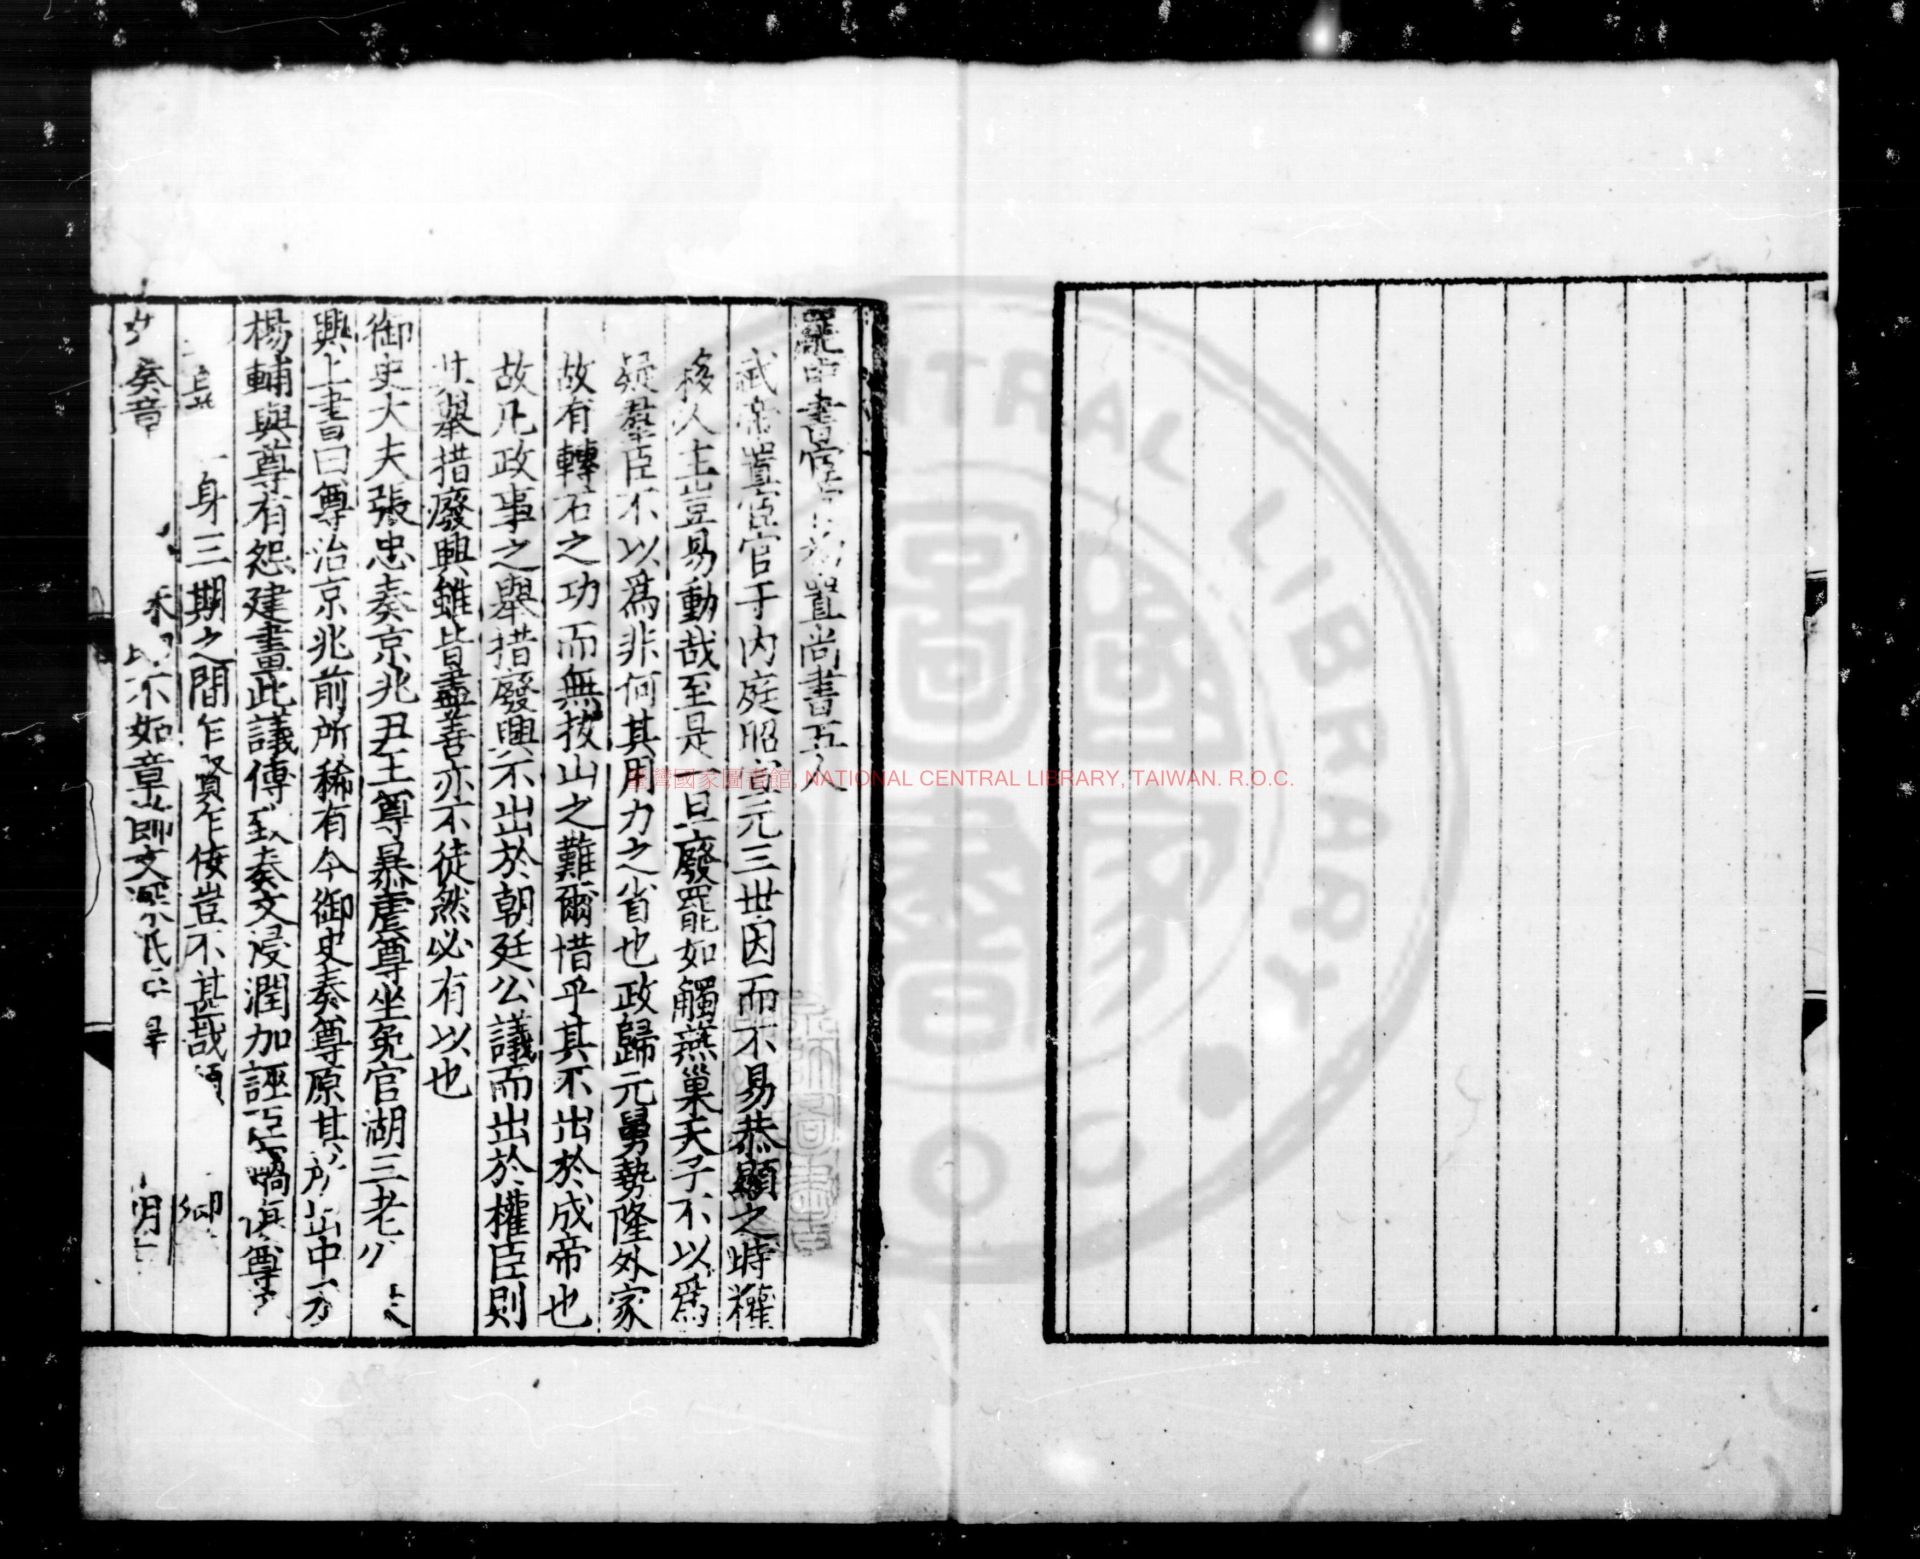 罷中書宦官初置尚書五人
武帝置宦官于內庭昭宣元三世因而不易恭顯之時權
移人主豈易動哉至是一旦廢罷如觸燕巢天子不以爲
疑羣臣不以爲非何其用力之省也政歸元舅勢隆外家
故有轉石之功而無拔山之難爾惜乎其不出於成帝也
故凡政事之舉措廢興不出於朝廷公議而出於權臣則
其舉措廢興雖皆盡善亦不徒然必有以也
御史大夫張忠奏京兆尹王尊暴虐尊坐免官湖三老公
興上書曰尊治京兆前所稀有今御史奏尊原其所
楊輔與尊有怨建畫此議傅致奏文浸潤加誣臣
身三期之間乍賢乍佞豈不甚哉
癸章 不如章 師文 氏
臺灣國家圖書館, NATIONAL CENTRAL LIBRARY, TAIWAN. R.O.C.